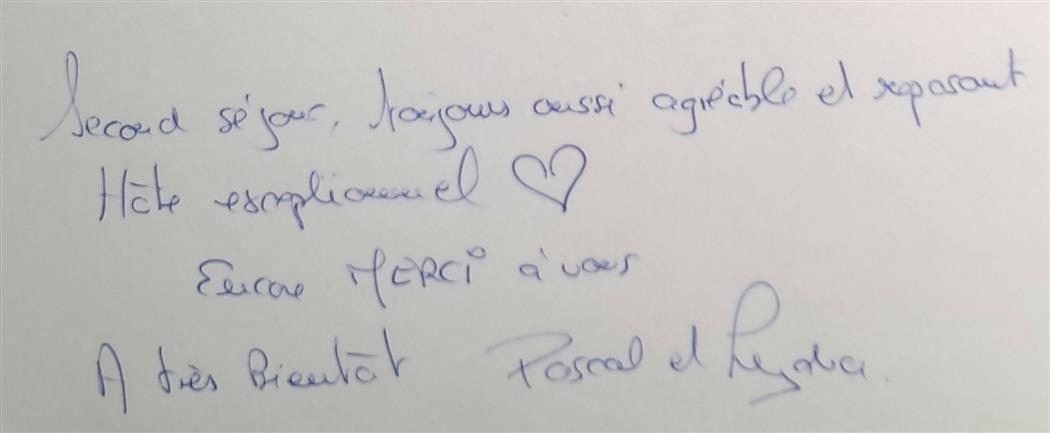 Second séjour, toujours aussi agréable et reposant
Hôte exceptionnel ♡
Encore MERCI à vous
A très Bientôt Pascal et